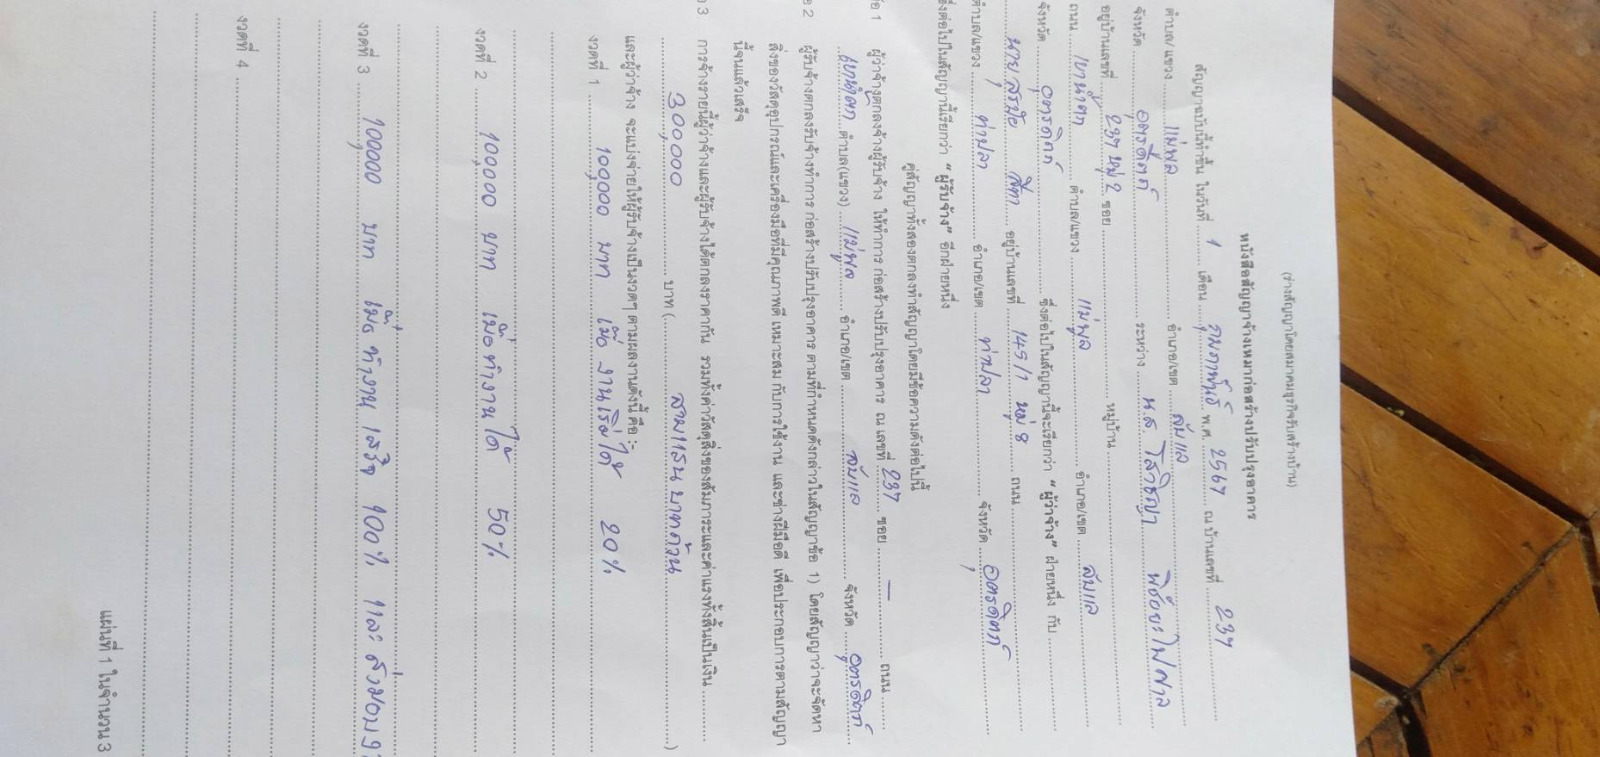 (ร่างสัญญาโดยสมาคมธุรกิจรับสร้างบ้าน)
หนังสือสัญญาจ้างเหมาก่อสร้างปรับปรุงอาคาร
สัญญาฉบับนี้ทำขึ้น ในวันที่ 1 เดือน กุมภาพันธ์ พ.ศ. 2567 ณ บ้านเลขที่ 237
ตำบล/แขวง แม่พูล อำเภอ/เขต ลับแล
จังหวัด อุตรดิตถ์ ระหว่าง น.ส.
อยู่บ้านเลขที่ 237 หมู่ 2 ซอย หมู่บ้าน
ถนน เขาน้ำตก ตำบล/แขวง แม่พูล อำเภอ/เขต ลับแล
จังหวัด อุตรดิตถ์ ซึ่งต่อไปในสัญญานี้จะเรียกว่า "ผู้ว่าจ้าง" ฝ่ายหนึ่ง กับ
นาย อยู่บ้านเลขที่ 145/1 หมู่ 8 ถนน
ตำบล/แขวง ท่าปลา อำเภอ/เขต ท่าปลา จังหวัด อุตรดิตถ์
ซึ่งต่อไปในสัญญานี้เรียกว่า "ผู้รับจ้าง" อีกฝ่ายหนึ่ง
คู่สัญญาทั้งสองตกลงทำสัญญาโดยมีข้อความดังต่อไปนี้
ข้อ 1 ผู้ว่าจ้างตกลงจ้างผู้รับจ้าง ให้ทำการ ก่อสร้างปรับปรุงอาคาร ณ เลขที่ 237 ซอย — ถนน
เขาน้ำตก ตำบล(แขวง) แม่พูล อำเภอ/เขต ลับแล จังหวัด อุตรดิตถ์
ข้อ 2 ผู้รับจ้างตกลงรับจ้างทำการ ก่อสร้างปรับปรุงอาคาร ตามที่กำหนดดังกล่าวในสัญญาข้อ 1) โดยสัญญาว่าจะจัดหา
สิ่งของวัสดุอุปกรณ์และเครื่องมือที่มีคุณภาพดี เหมาะสม กับการใช้งาน และช่างฝีมือดี เพื่อประกอบการตามสัญญา
นี้จนแล้วเสร็จ
ข้อ 3 การจ้างรายนี้ผู้ว่าจ้างและผู้รับจ้างได้ตกลงราคากัน รวมทั้งค่าวัสดุสิ่งของสัมภาระและค่าแรงทั้งสิ้นเป็นเงิน
300,000 บาท ( สามแสนบาทถ้วน )
และผู้ว่าจ้าง จะแบ่งจ่ายให้ผู้รับจ้างเป็นงวดๆ ตามผลงานดังนี้ คือ :-
งวดที่ 1 100,000 บาท เมื่อ งานเริ่มได้ 20%
งวดที่ 2 100,000 บาท เมื่อทำงานได้ 50%
งวดที่ 3 100,000 บาท เมื่อ ทำงาน เสร็จ 100% และ ส่งมอบ
งวดที่ 4
แผ่นที่ 1 ในจำนวน 3